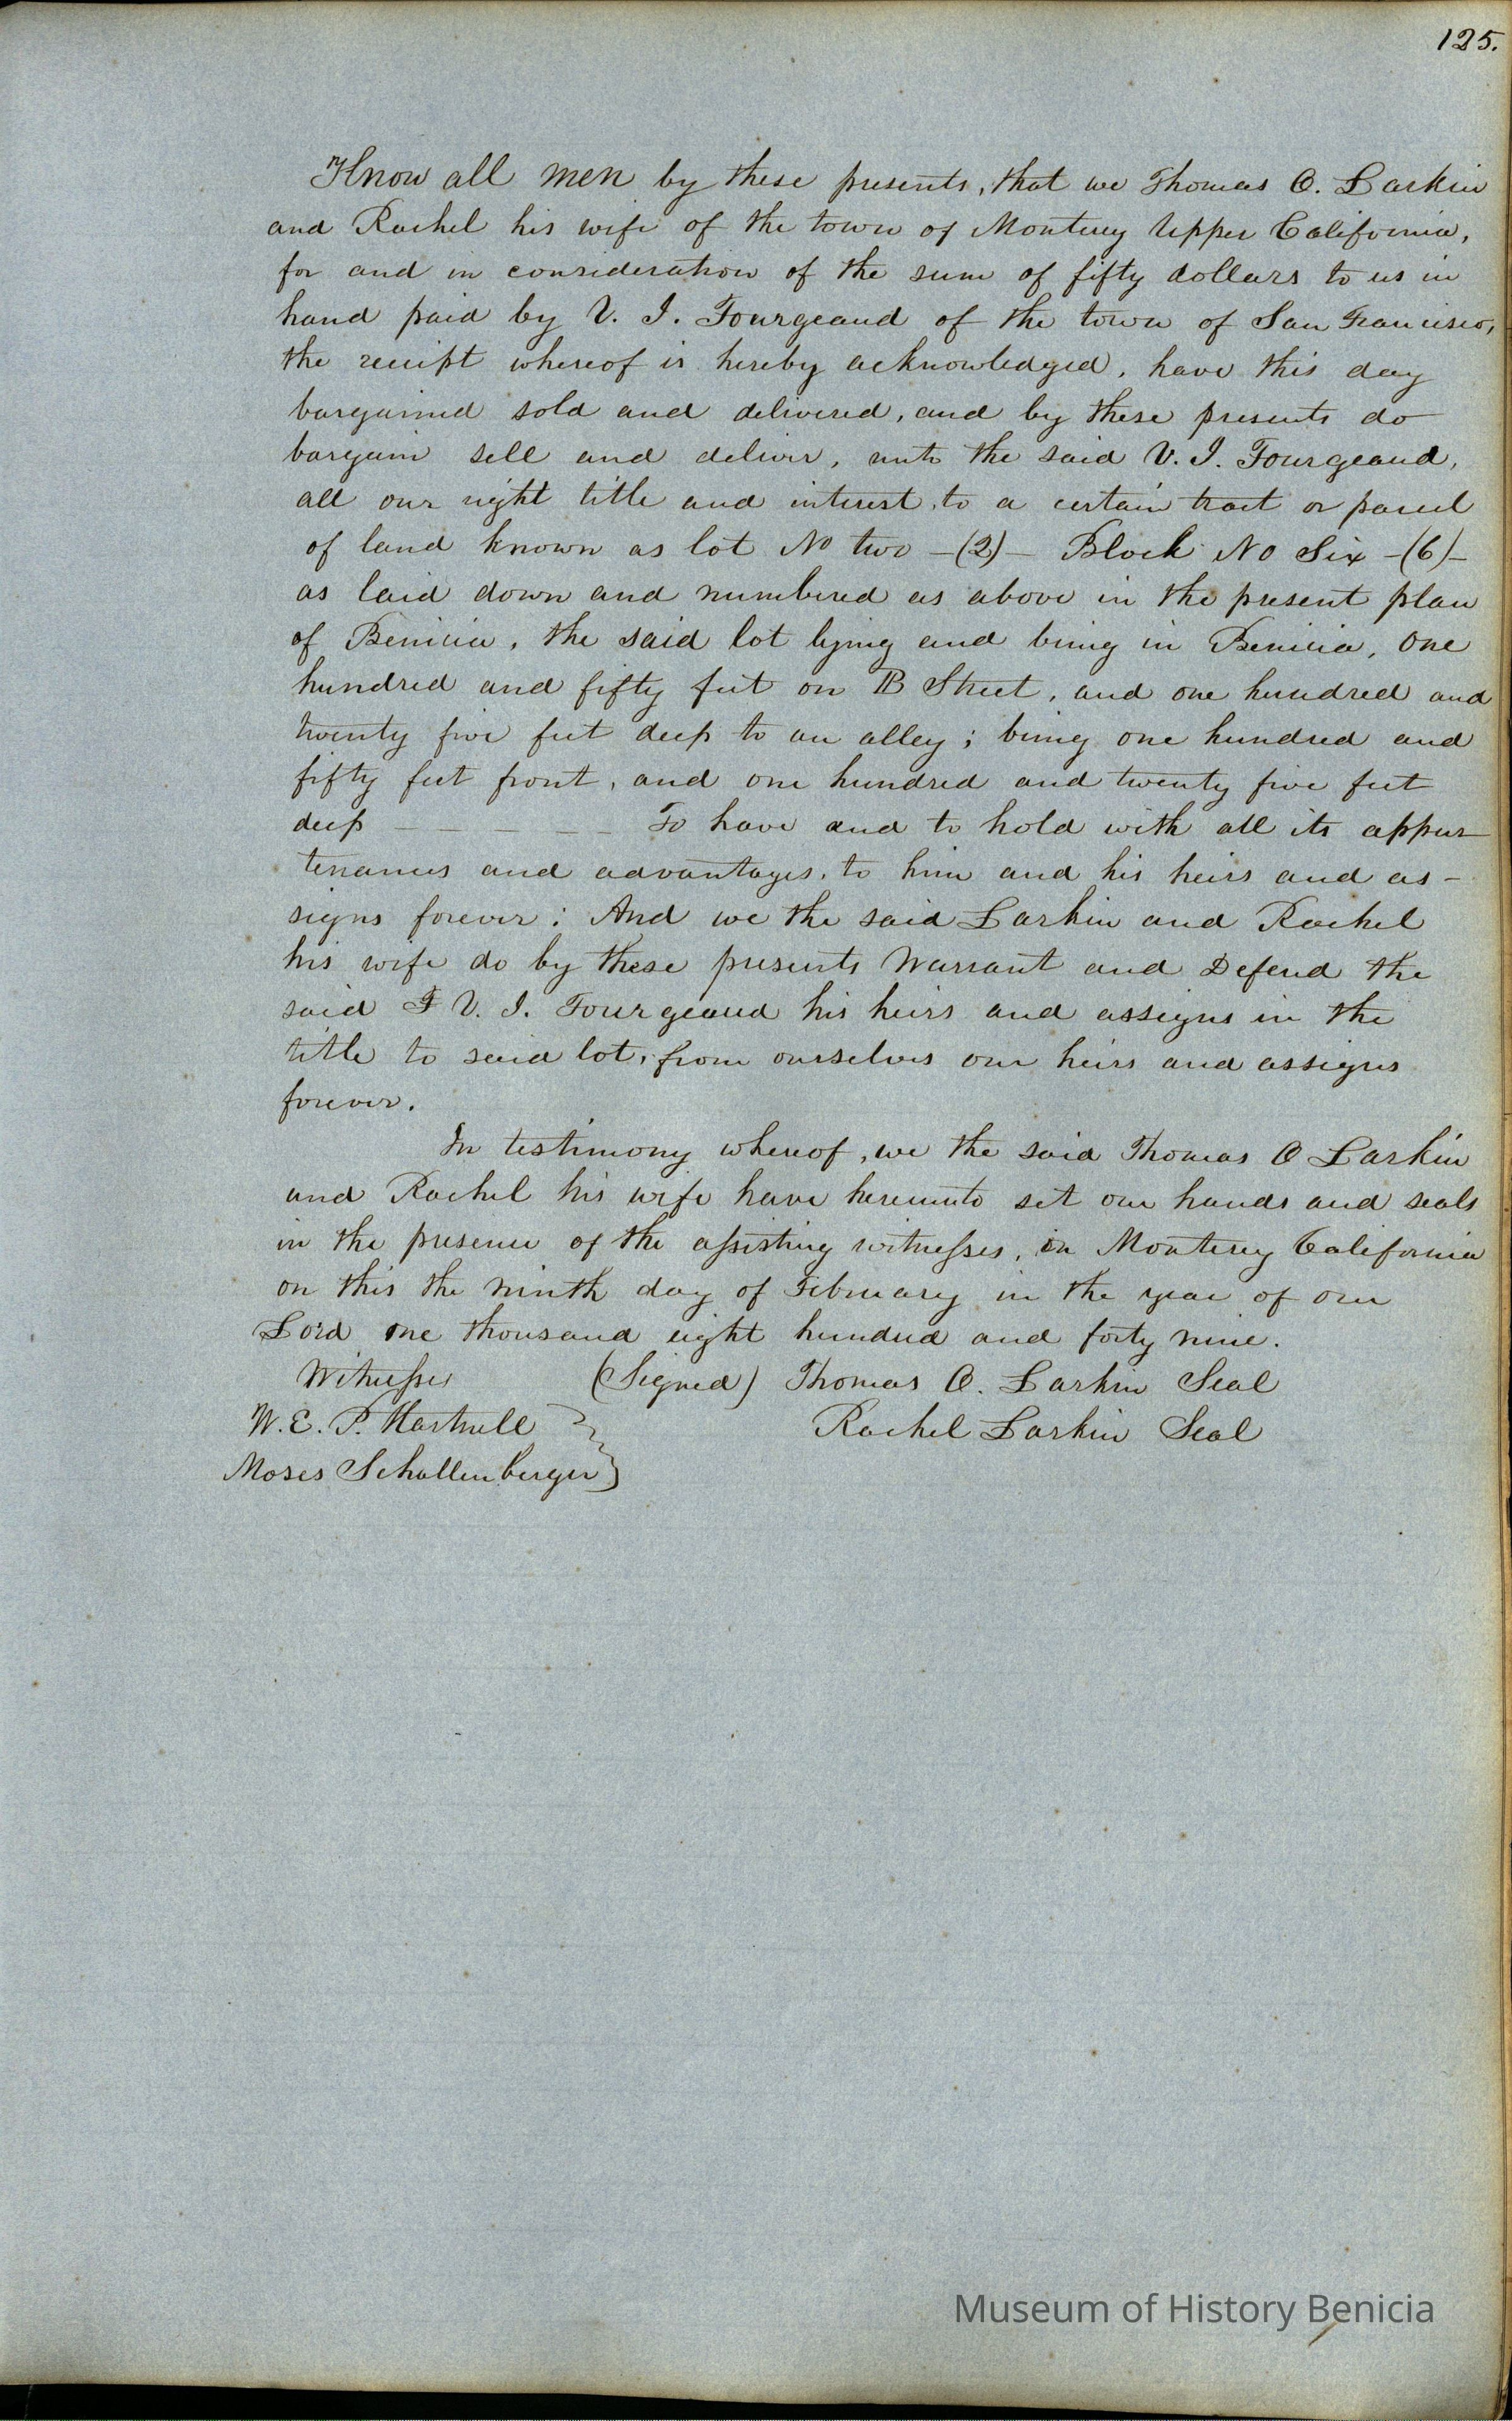 125.
Know all men by these presents, that we Thomas O. Larkin
and Rachel his wife of the town of Monterey Upper California,
for and in consideration of the sum of fifty dollars to us in
hand paid by V. J. Fourgeaud of the town of San Francisco,
the receipt whereof is hereby acknowledged, have this day
bargained sold and delivered, and by these presents do
bargain sell and deliver, unto the said V. J. Fourgeaud,
all our right title and interest, to a certain tract or parcel
of land known as lot No two -(2)- Block No Six -(6)-
as laid down and numbered as above in the present plan
of Benicia, the said lot lying and being in Benicia, One
hundred and fifty feet on B Street, and one hundred and
twenty five feet deep to an alley; being one hundred and
fifty feet front, and one hundred and twenty five feet
deep — — — — — — To have and to hold with all its appur-
tenances and advantages, to him and his heirs and as-
signs forever: And we the said Larkin and Rachel
his wife do by these presents Warrant and Defend the
said F V. J. Fourgeaud his heirs and assigns in the
title to said lot, from ourselves our heirs and assigns
forever.
In testimony whereof, we the said Thomas O Larkin
and Rachel his wife have hereunto set our hands and seals
in the presence of the assisting witnesses, in Monterey California
on this the ninth day of February in the year of our
Lord one thousand eight hundred and forty nine.
Witnesses (Signed) Thomas O. Larkin Seal
W. E. P. Hartnell Rachel Larkin Seal
Moses Schallenberger
Museum of History Benicia